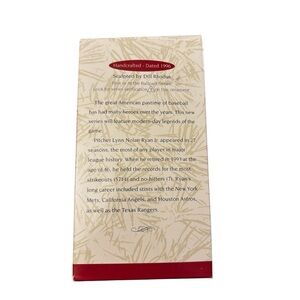 Handcrafted - Dated 1996
Sculpted by Dill Rhodus
First in the Ballpark Series
Look for series
The great American pastime of baseball
has had many heroes over the years. This new
series will feature modern-day legends of the
game.
Pitcher Lynn Nolan Ryan Jr. appeared in 27
seasons, the most of any player in major
league history. When he retired in 1993 at the
age of 46, he held the records for the most
strikeouts (5714) and no-hitters (7). Ryan's
long career included stints with the New York
Mets, California Angels, and Houston Astros,
as well as the Texas Rangers.